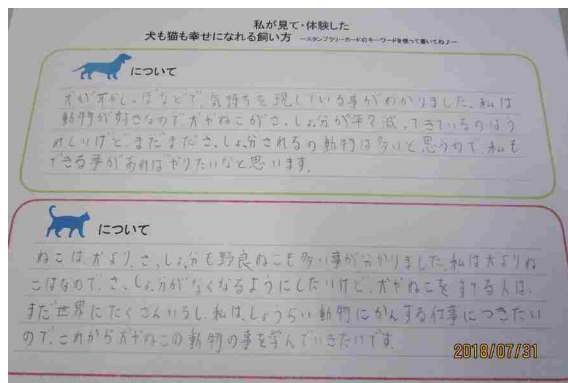 私が見て・体験した
犬も猫も幸せになれる飼い方 ースタンプラリーカードのキーワードを使って書いてね♪ー
について
犬が耳やしっぽなどで、気持ちを現している事がわかりました。私は
動物が好きなので犬やねこがさっしょ分が年々減ってきているのはう
れしいけど、まだまださっしょ分されるの動物は多いと思うので、私も
できる事があればやりたいなと思います。
について
ねこは、犬より、さっしょ分も野良ねこも多い事が分かりました。私は犬よりね
こはなので、さっしょ分がなくなるようにしたいけど、犬やねこをすてる人は、
まだ世界にたくさんいるし、私は、しょうらい動物にかんする仕事につきたい
ので、これから犬やねこの動物の事を学んでいきたいです。
2018/07/31